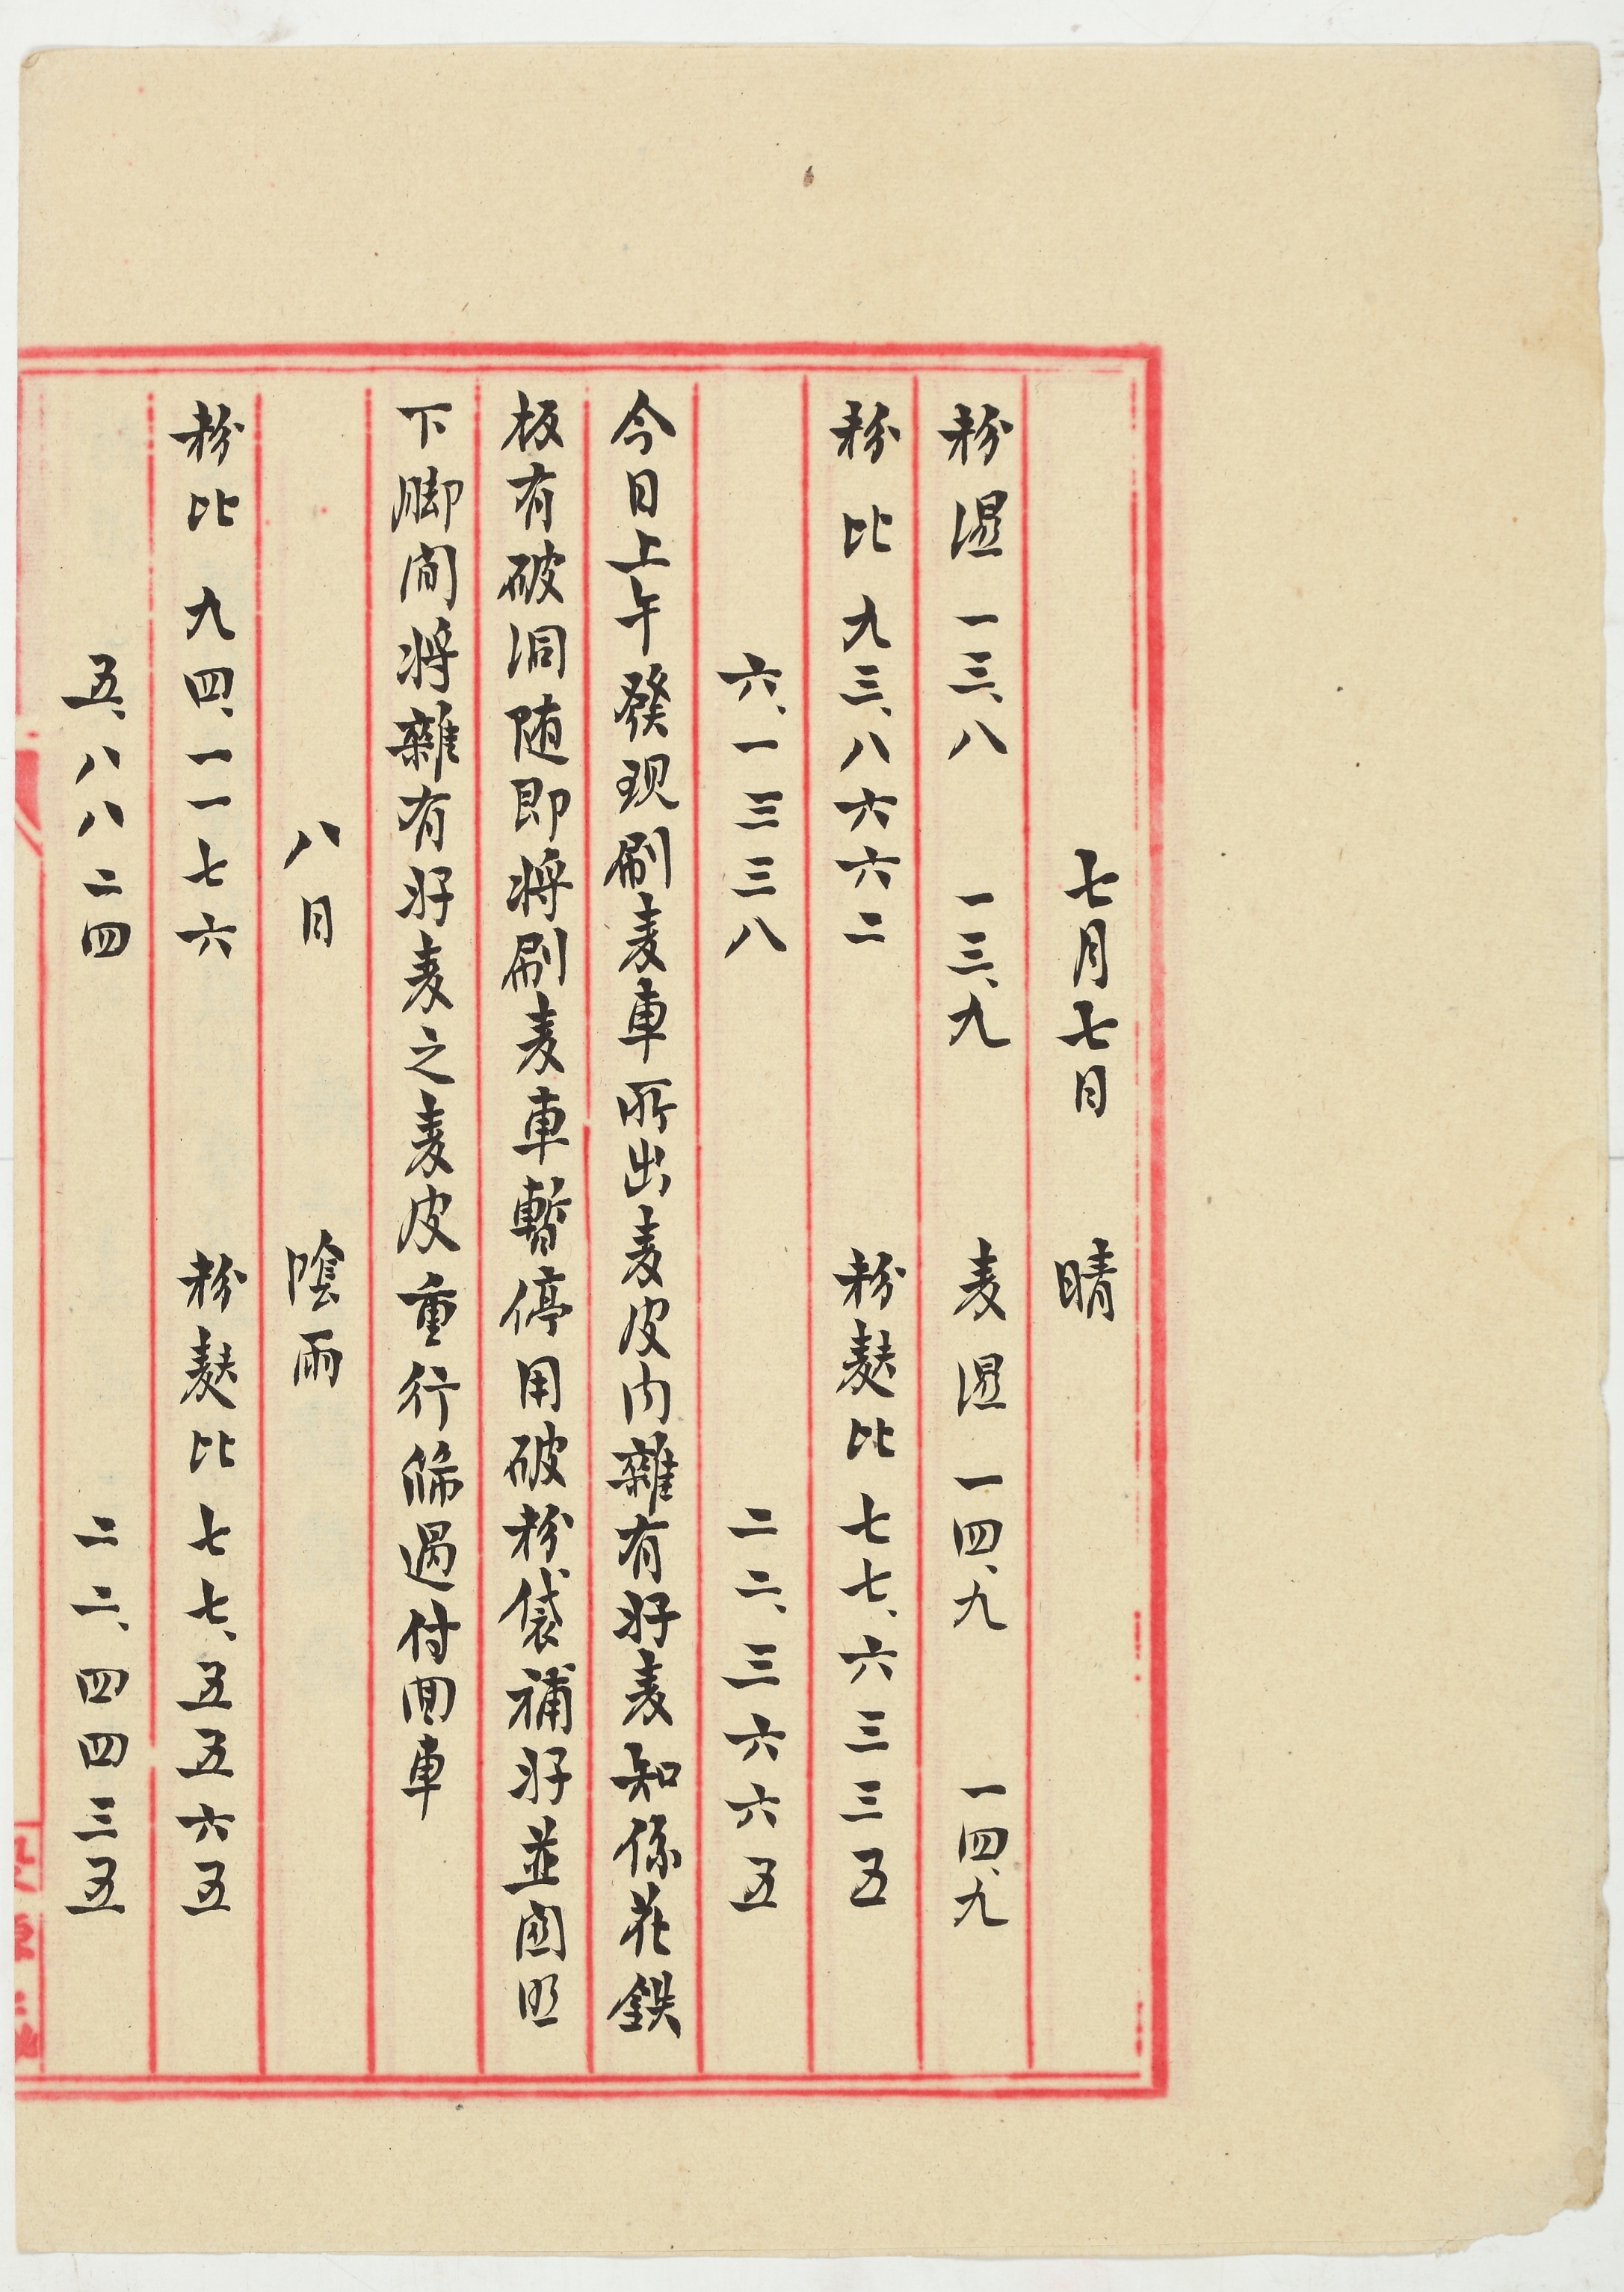 七月七日　晴
粉濕 一三、八　一三、九　麦濕 一四、九　一四、九
粉比 九三、八六六二　粉麩比 七七、六三三五
六、一三三八　二二、三六六五
今日上午發现刷麦車所出麦皮内雜有好麦知係花鉄
板有破洞随即将刷麦車暫停用破粉袋補好並囱照
下脚间将雜有好麦之麦皮重行篩過付回車
八日　陰雨
粉比 九四、一一七六　粉麩比 七七、五五六五
五、八八二四　二二、四四三五